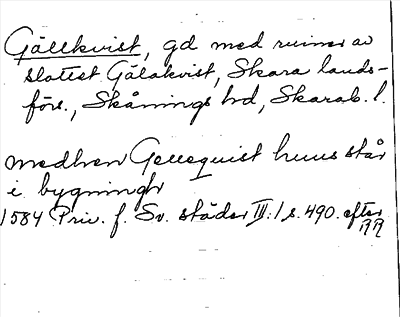 Gällkvist, gd med ruiner av
slottet Gälakvist, Skara lands-
förs., Skånings hd, Skarab. l.
medhen Gellequist huus står
i bygningh
1584 Priv. f. Sv. städer III:1 s. 490. efter
RR